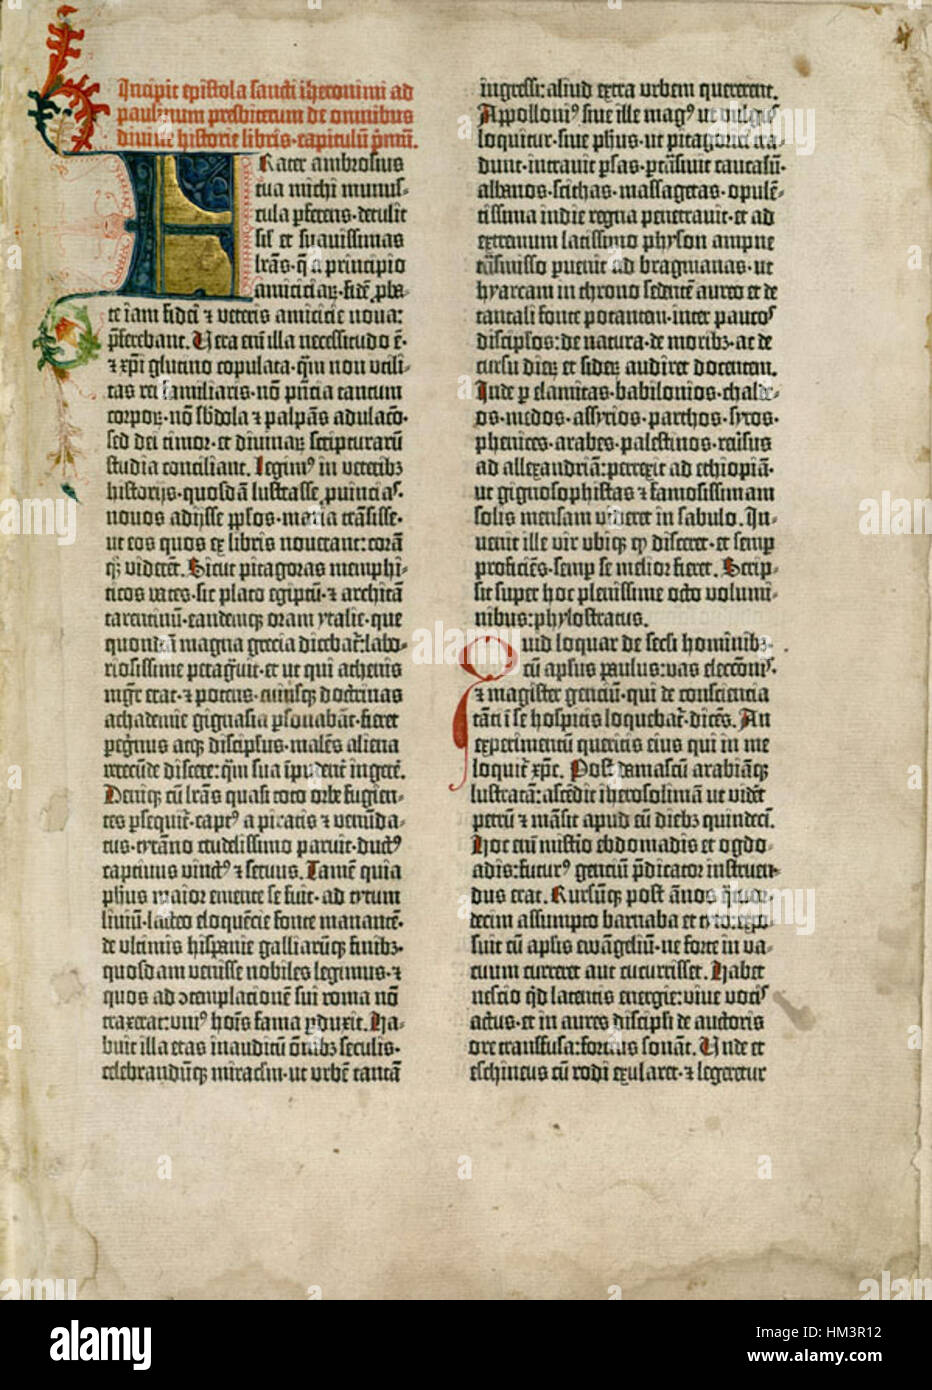 Incipit epistola sancti iheronimi ad
paulinum presbiterum de omnibus
divine historie libris·capitulū p̄mū.
Frater ambrosius
tua michi munus-
cula p̄ferens·detulit
sil̄ et suavissimas
lr̄as·q̄ a principio
amiciciaꝝ·fidē ꝓba-
te iam fidei ⁊ veteris amicicie nova:
p̄ferebant. Vera enī illa necessitudo ē·
⁊ xp̄i glutino copulata·qm̄ non utili-
tas rei familiaris·nō p̄ncia tantum
corpoꝝ·nō s̄bdola ⁊ palpās adulac̄o·
sed dei timor·et divinaꝝ scripturarū
studia conciliant. Legimꝰ in veteribꝫ
historijs·quosdā lustrasse ꝓvinciaˢ·
novos adijsse pp̄los·maria trāsisse·
ut eos quos ex libris noverant:corā
qꝫ viderēt. Sicut pitagoras memphi-
ticos vates·sic plato egiptū·⁊ architā
tarentinū·eandemqꝫ oram ytalie·que
quondā magna grecia dicebat̄:labo-
riosissime peragͣvit·et ut qui athenis
mgr̄ erat·⁊ potens·cuiusqꝫ doctrinas
achademie gignasia p̄sonabāt·fieret
pegͥnus atqꝫ discipl̄us·malēs aliena
verecūde discere:qm̄ sua īpudent̄ ingerē.
Deniqꝫ cū lr̄as quasi toto orbe fugien-
tes ꝑsequit̄·captꝰ a piratis ⁊ venūda-
tus·tyrāno crudelissimo paruit·ductꝰ
captivus vinctꝰ ⁊ servus. Tamē quia
ph̄us maior emente se fuit·ad tytum
livium·lacteo eloquēcie fonte manantē·
de ultimis hispanie galliarūqꝫ finibꝫ·
quosdam venisse nobiles legimus·⁊
quos ad ꝯtemplationē sui roma nō
traxerat:uniꝰ hoīs fama ꝑduxit. Ha-
buit illa etas inauditū ōnibꝫ seculis·
celebrandūqꝫ miraculū·ut urbē tantā
ingressi:aliud extra urbem quererent.
Appolloniꝰ sive ille magꝰ ut vulgꝰ
loquitur·sive ph̄us·ut pitagorici tra-
dunt·intravit ꝑsas·ꝑtrāsivit caucasū·
albanos·scithas·massagetas·opulē-
tissima indie regna penetravit·et ad
extremum latissimo physon ampne
trāsmisso pervenit ad bragmanas·ut
hyarcam in throno sedentē aureo et de
tantali fonte potantem·inter paucoˢ
discipl̄os:de natura·de moribꝫ·ac de
cursu dieꝝ et sideꝝ audiret docentem.
Inde ꝑ elamitas·babilonios·chalde-
os·medos·assyrios·parthos·syros·
phenices·arabes·palestinos·reūsus
ad allexandriā:perrexit ad ethiopiā·
ut gignosophistas ⁊ famosissimam
solis mensam videret in sabulo. In-
venit ille vir ubiqꝫ qđ disceret·et semꝑ
proficiēs·semꝑ se melior fieret. Scrip-
sit super hoc plenissime octo volumi-
nibus:phylostratus.
Quid loquar de seculi hominibꝫ·
cū apl̄us paulus:vas elecc̄oniˢ·
⁊ magister genciū·qui de consciencia
tāti ī se hospitis loquebat̄·dicēs. An
experimentū queritis eius qui in me
loquit̄ xp̄c. Post damascū arabiāqꝫ
lustratā:ascēdit iherosolimā ut vidēt
petrū ⁊ māsit apud eū diebꝫ quindeci.
Hoc enī misterio ebdomadis et ogdo-
adis:futurꝰ genciū p̄dicator instruen-
dus erat. Rursūqꝫ post ānos qͣtuor-
decim assumpto barnaba et tyto:expo-
suit cū apl̄is ewāgeliū·ne forte in va-
cuum curreret aut cucurrisset. Habet
nescio qͥd latentis energie:vive vociˢ
actus·et in aures discipl̄i de auctoris
ore transfusa:fortius sonāt. Unde et
eschineus cū rodi exularet·⁊ legeretur
alamy
HM3R12
www.alamy.com